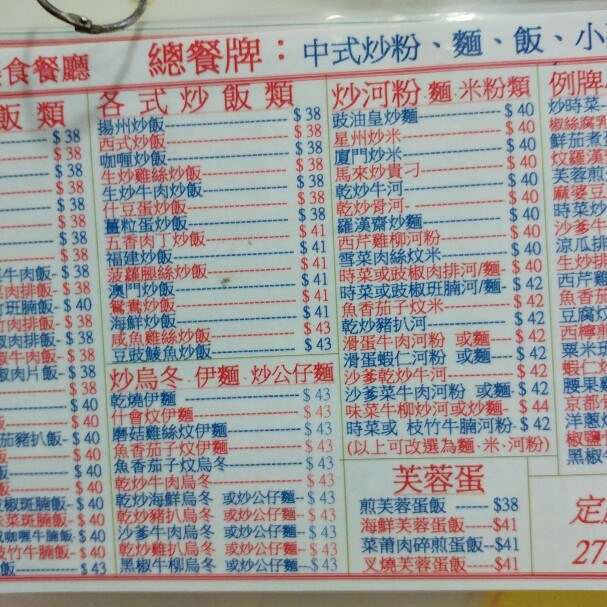 食餐廳 總餐牌： 中式炒粉、麵、飯、小
飯類
$38
$38
$38
$38
$38
$38
$38
牛肉飯-$38
肉排飯-$38
班腩飯-$40
肉排飯-$38
椒肉排飯-$38
椒牛肉飯-$38
椒肉片飯-$38
$40
$40
茄豬扒飯-$40
飯-$40
飯-$40
$40
椒斑腩飯-$40
味菜斑腩飯-$40
咖喱牛腩飯-$40
枝竹牛腩飯-$40
飯-$43
各式炒飯類
揚州炒飯$38
西式炒飯$38
咖喱炒飯$38
生炒雞絲炒飯$38
生炒牛肉炒飯$38
什豆蛋炒飯$38
薑粒蛋炒飯$41
五香肉丁炒飯$41
福建炒飯$41
菠蘿腿絲炒飯$41
澳門炒飯$41
鴛鴦炒飯$41
海鮮炒飯$43
咸魚雞絲炒飯$43
豆豉鯪魚炒飯$43
炒烏冬·伊麵·炒公仔麵
乾燒伊麵$43
什會炆伊麵$43
磨菇雞絲炆伊麵$43
魚香茄子炆伊麵$43
魚香茄子炆烏冬$43
乾炒牛肉烏冬$43
乾炒海鮮烏冬 或炒公仔麵-$43
乾炒豬扒烏冬 或炒公仔麵-$43
沙爹牛肉烏冬 或炒公仔麵-$43
乾炒雞扒烏冬 或炒公仔麵-$43
黑椒牛柳烏冬 或炒公仔麵-$43
炒河粉·麵·米粉類
豉油皇炒麵$40
星州炒米$40
廈門炒米$40
馬來炒貴刁$40
乾炒牛河$40
乾炒骨河$40
羅漢齋炒麵$40
西芹雞柳河粉$40
雪菜肉絲炆米$40
時菜或豉椒肉排河/麵-$40
時菜或豉椒班腩河/麵-$42
魚香茄子炆米$42
乾炒豬扒河$42
滑蛋牛肉河粉 或麵$42
滑蛋蝦仁河粉 或麵$42
沙爹乾炒牛河$42
沙爹菜牛肉河粉 或麵-$42
味菜牛柳炒河或炒麵-$44
時菜或 枝竹牛腩河粉-$42
(以上可改選為麵·米·河粉)
芙蓉蛋
煎芙蓉蛋飯$38
海鮮芙蓉蛋飯$41
菜莆肉碎煎蛋飯--$41
叉燒芙蓉蛋飯$41
例牌
炒時菜
椒絲腐乳
鮮茄煮
炆羅漢
芙蓉煎
麻婆豆
時菜炒
沙爹牛
涼瓜排
生炒排
魚香茄
豆腐炆
西檸煎
粟米班
蝦仁炒
腰果
京都
洋蔥
椒鹽
黑椒牛
定
275